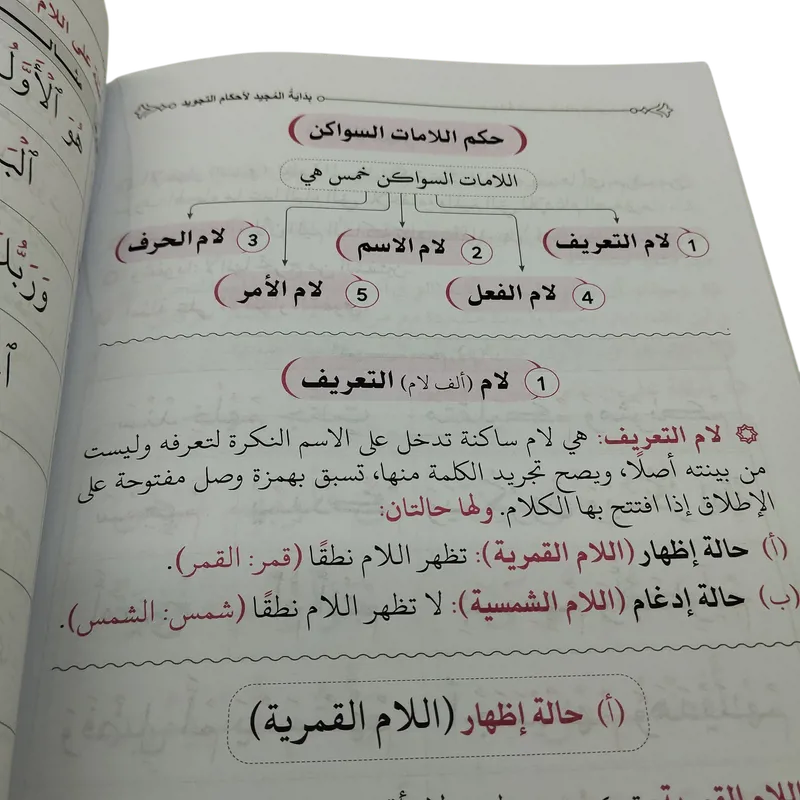 بداية المجيد لأحكام التجويد
حكم اللامات السواكن
اللامات السواكن خمس هي
1 لام التعريف
2 لام الاسم
3 لام الحرف
4 لام الفعل
5 لام الأمر
1 لام (ألف لام) التعريف
لام التعريف: هي لام ساكنة تدخل على الاسم النكرة لتعرفه وليست
من بينته أصلًا، ويصح تجريد الكلمة منها، تسبق بهمزة وصل مفتوحة على
الإطلاق إذا افتتح بها الكلام. ولها حالتان:
(أ) حالة إظهار (اللام القمرية): تظهر اللام نطقًا (قمر: القمر).
(ب) حالة إدغام (اللام الشمسية): لا تظهر اللام نطقًا (شمس: الشمس).
(أ) حالة إظهار (اللام القمرية)
على اللام
هُوَ ٱلْأَوَّلُ